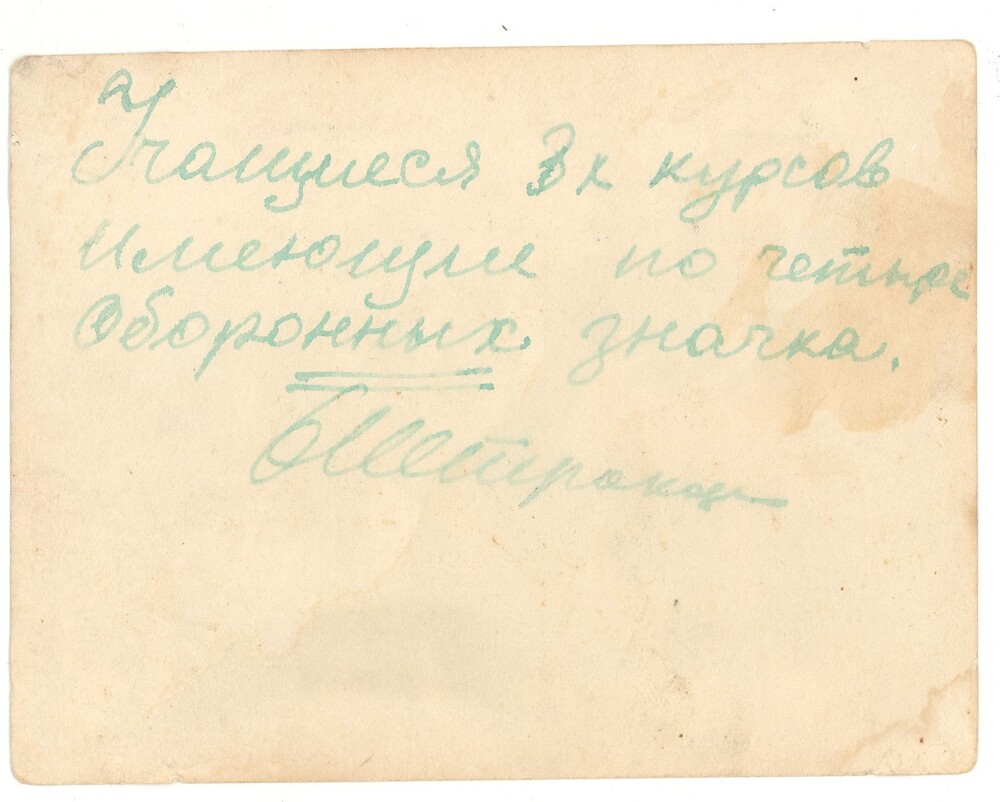 Учащиеся 3х курсов
имеющие по четыре
Оборонных значка.